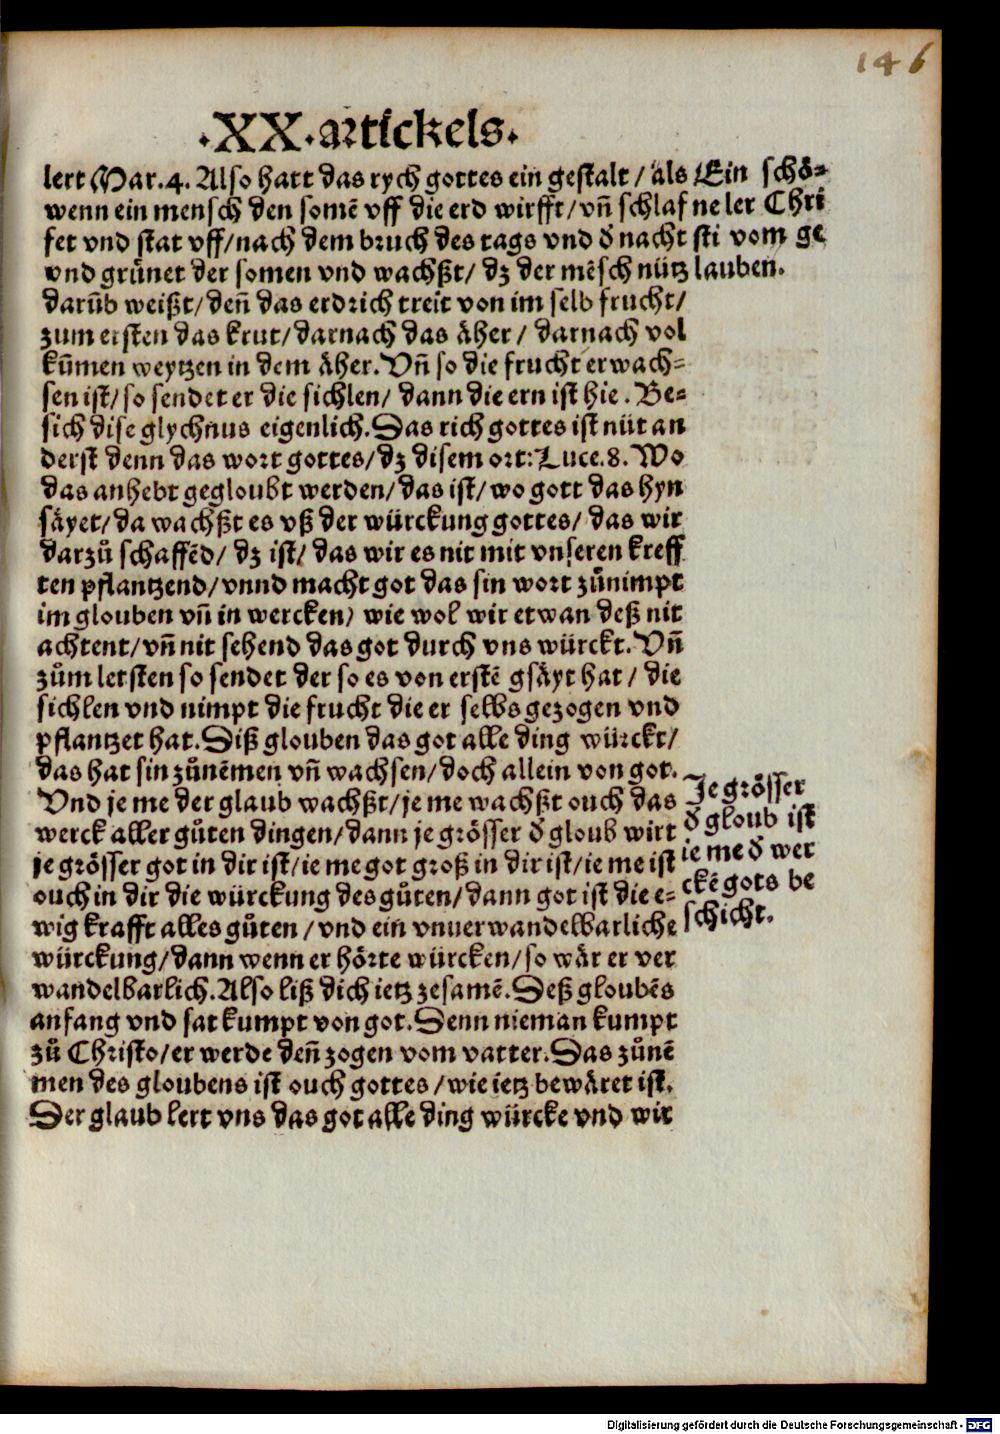 146
.XX.artickels.
lert Mar.4. Also hatt das rych gottes ein gestalt / als
wenn ein mensch den somē vff die erd wirfft/vn̄ schlaf
fet vnd stat vff/nach dem bruch des tags vnd đ nacht
vnd grůnet der somen vnd wachßt/ dz der mēsch nütz
darūb weißt/ den̄ das erdrich treit von im selb frucht/
zum ersten das krut/darnach das åher / darnach vol
kūmen weytzen in dem åher. Vn̄ so die frucht erwach-
sen ist/ so sendet er die sichlen/ dann die ern ist hie . Be-
sich dise glychnus eigenlich. Das rich gottes ist nüt an
derst denn das wort gottes/dz disem ort: Luce.8. Wo
das anhebt gegloubt werden/das ist/ wo gott das hyn
såyet/da wachßt es vß der würckung gottes/ das wir
darzů schaffēd/ dz ist/ das wir es nit mit vnseren kreff
ten pflantzend/vnnd macht got das sin wort zůnimpt
im glouben vn̄ in wercken/ wie wol wir etwan deß nit
achtent/vn̄ nit sehend das got durch vns würckt. Vn̄
zům letsten so sendet der so es von erstē gsåyt hat / die
sichlen vnd nimpt die frucht die er selbs gezogen vnd
pflantzet hat. Diß glouben das got alle ding würckt/
das hat sin zůnēmen vn̄ wachsen/doch allein von got.
Vnd je me der glaub wachßt/je me wachßt ouch das
werck aller gůten dingen/dann je grösser đ gloub wirt
je grösser got in dir ist/ie me got groß in dir ist/ie me ist
ouch in dir die würckung des gůten/dann got ist die e-
wig krafft alles gůten /vnd ein vnuerwandelbarliche
würckung/dann wenn er hörte würcken/so wår er ver
wandelbarlich. Also liß dich ietz zesamē. Deß gloubēs
anfang vnd sat kumpt von got. Denn nieman kumpt
zů Christo/er werde den̄ zogen vom vatter. Das zůnē
men des gloubens ist ouch gottes /wie ietz bewåret ist.
Der glaub lert vns das got alle ding würcke vnd wir
Ein schö-
ne ler Chri
sti vom ge
lauben.
Je grösser
đ gloub ist
ie me đ wer
ckē gots be
schicht.
Digitalisierung gefördert durch die Deutsche Forschungsgemeinschaft - DFG